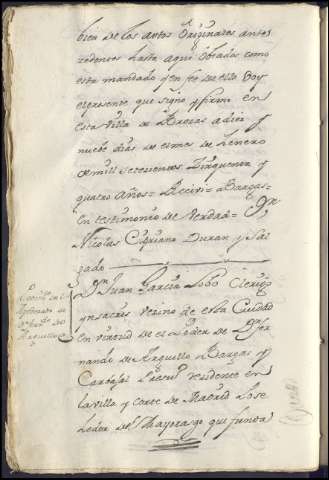 bien de los autos Originales antes
zedentes hasta aqui obrados como
esta mandado y en fee de ello Doy
el presente que signo y firmo en
esta Villa de Brozas a diez y
nuebe dias de el mes de henero
de mill setezientos zinquenta y
quatro años = Reciví = Bargas =
En testimonio de Verdad =
Nicolas Cipriano Duran y Sal
gado
Dn Juan Garcia Lobo Clerigo
ynsacris vezino de esta Ciudad
En virtud de el Poder de Dn fer
nando de Arguello Bargas y
Carbajal residente en
la villa y Corte de Madrid Pose
hedor del Mayorasgo que fundo